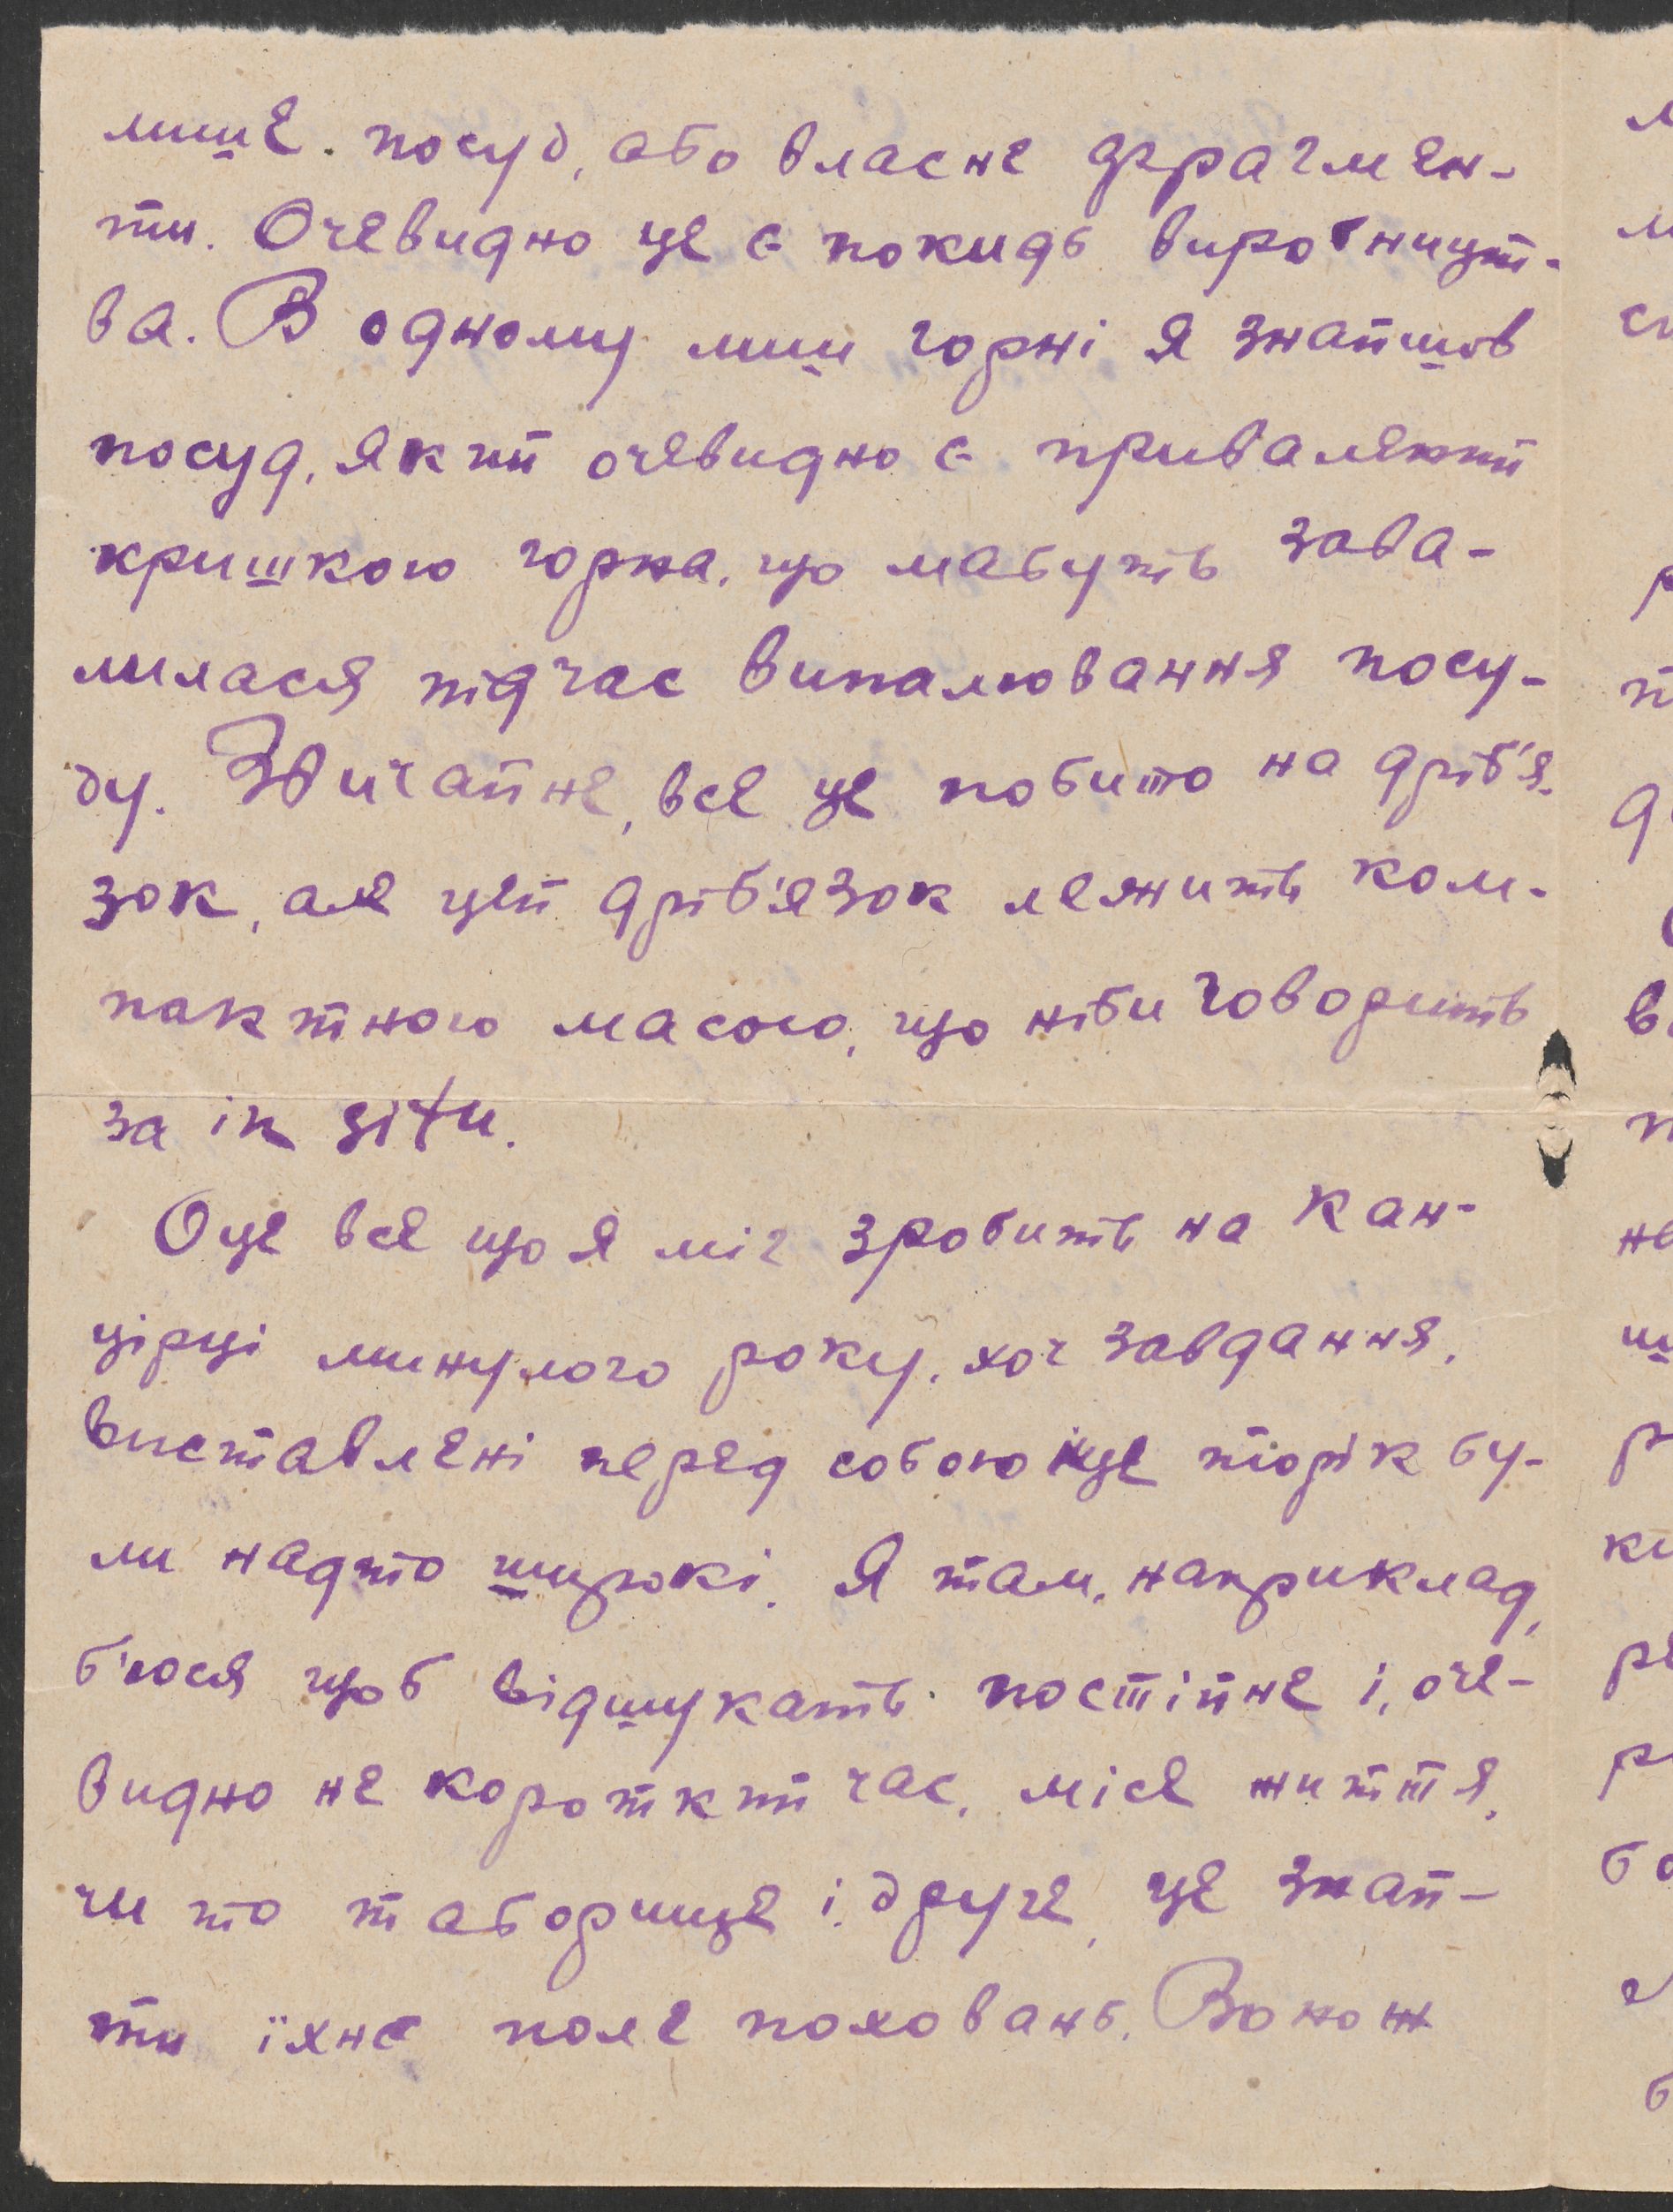 лише посуд, або власне фрагмен-
ти. Очевидно це є покидь виробницт-
ва. В одному лиш горні я знайшов
посуд, який очевидно є привалений
кришкою горна, що мабуть зава-
лилася підчас випалювання посу-
ду. Звичайне, все це побито на дріб'я-
зок, але цей дріб'язок лежить ком-
пактною масою, що ніби говорить
за in situ.
Оце все що я міг зробить на Кан-
цірці минулого року, хоч завдання,
виставлені перед собою ще торік бу-
ли надто широкі. Я там, наприклад,
б'юся щоб відшукать постійне і, оче-
видно не короткий час, місе життя,
чи то таборище і друге, це знай-
ти їхнє поле поховань. Воно ж